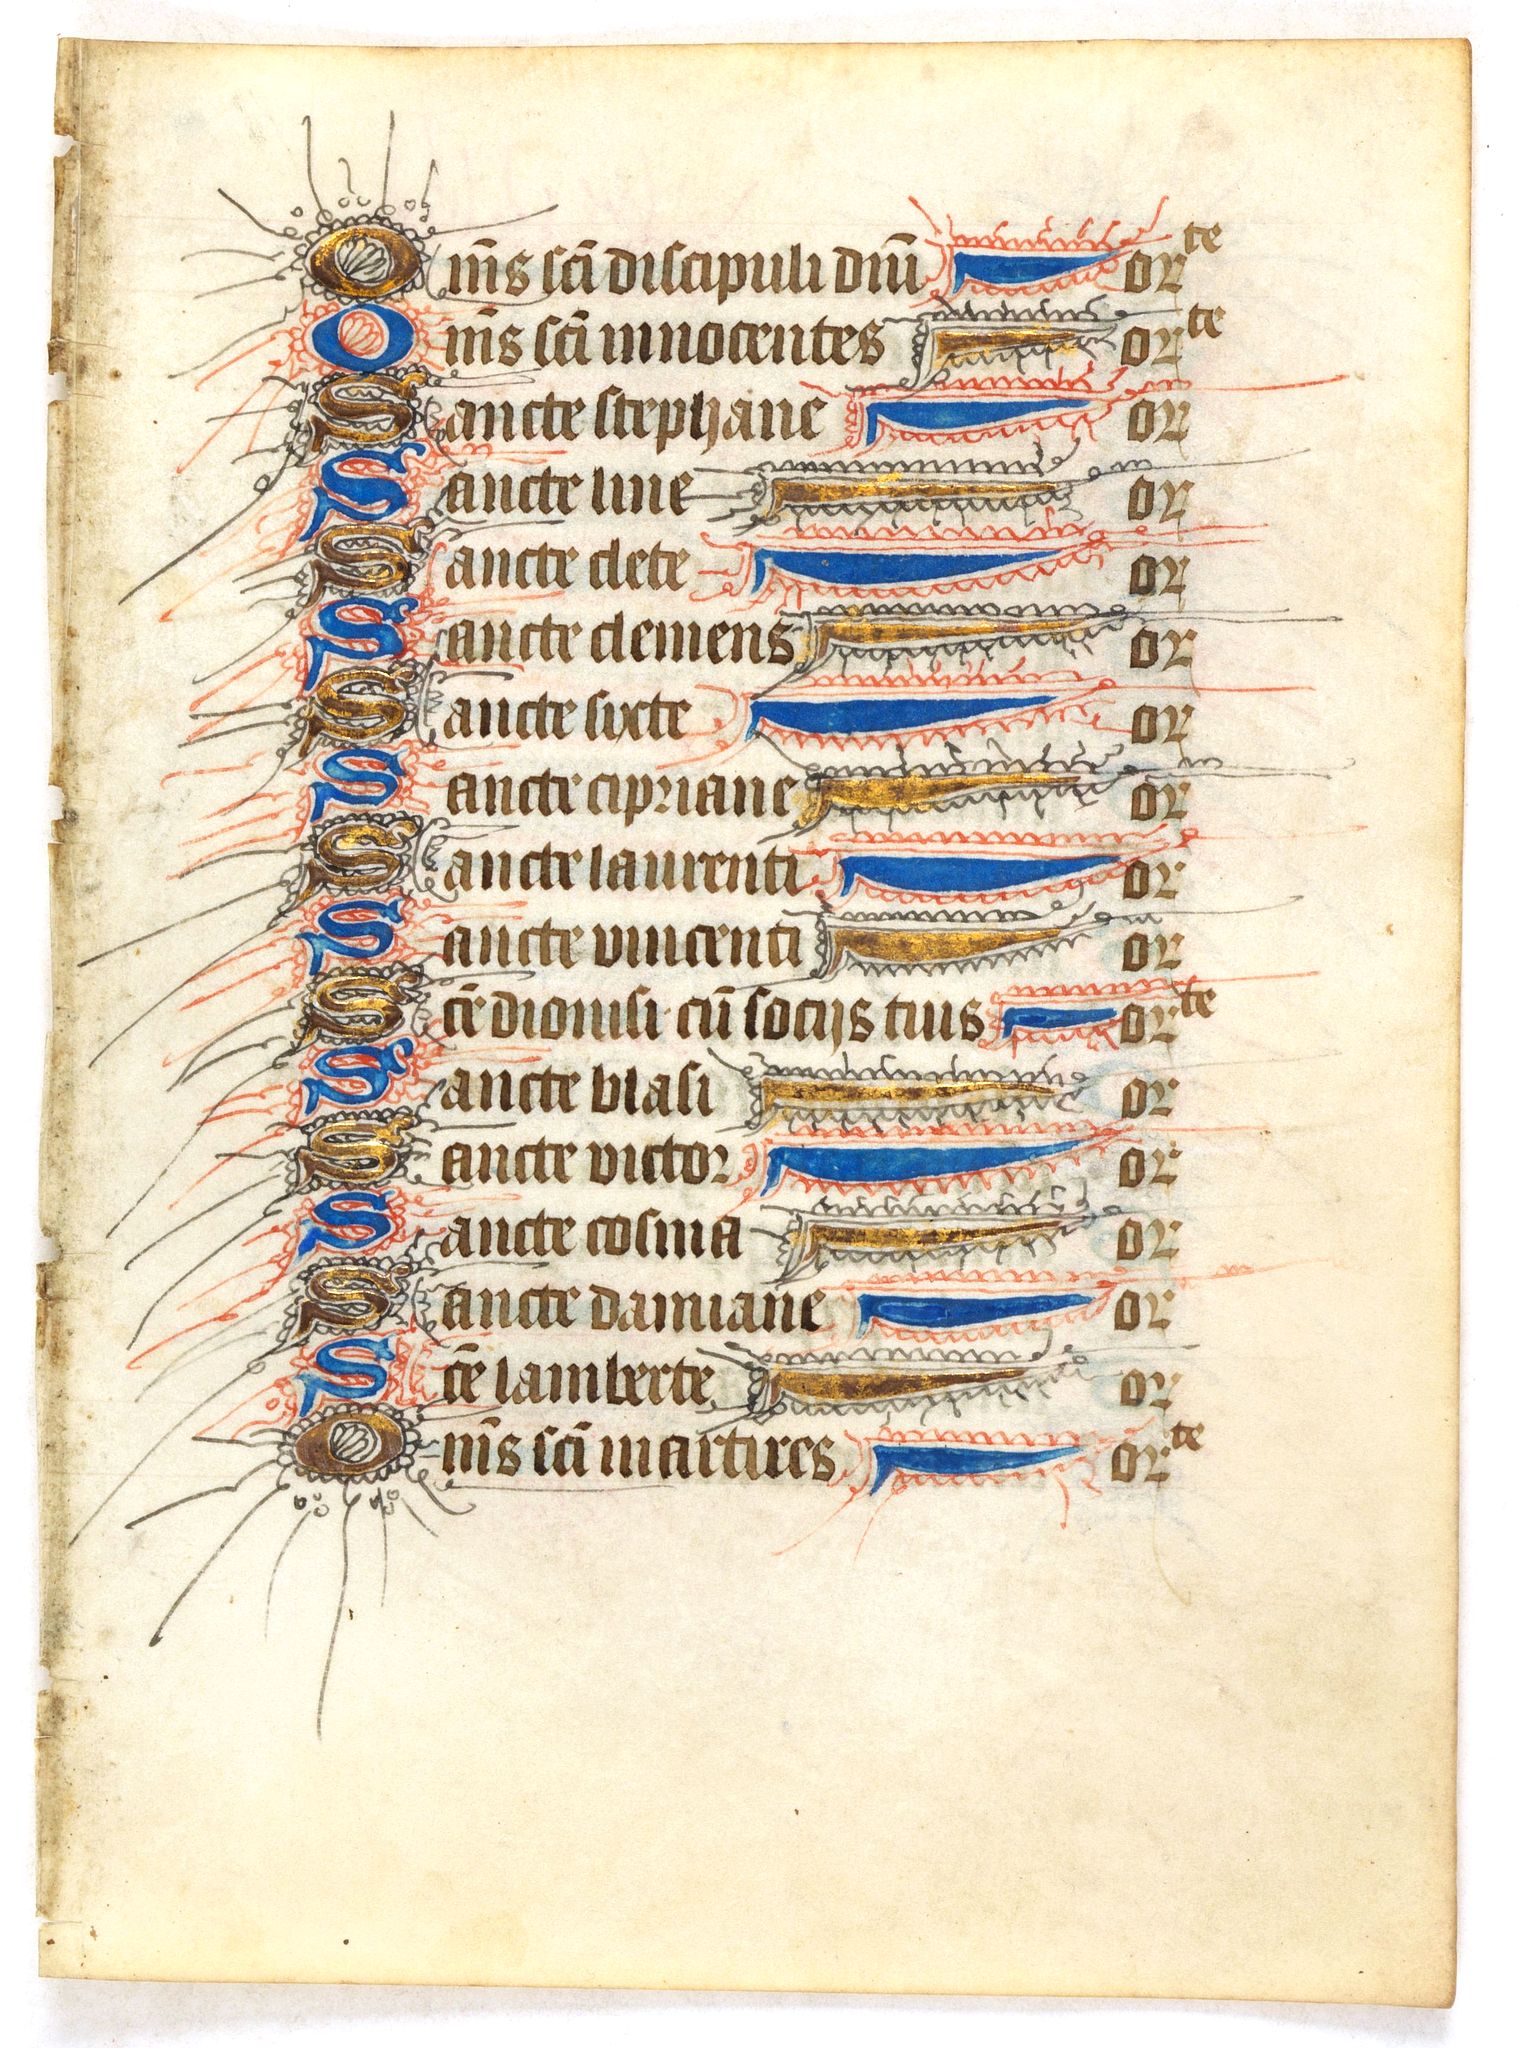 Om̄s sc̄i discipuli dn̄i orᵗᵉ
Om̄s sc̄i innocentes orᵗᵉ
Sancte stephane or
Sancte line or
Sancte clete or
Sancte clemens or
Sancte sixte or
Sancte cipriane or
Sancte laurenti or
Sancte vincenti or
Sc̄e dionisi cū socijs tuis orᵗᵉ
Sancte blasi or
Sancte victor or
Sancte cosma or
Sancte damiane or
Sc̄e lamberte or
Om̄s sc̄i martires orᵗᵉ